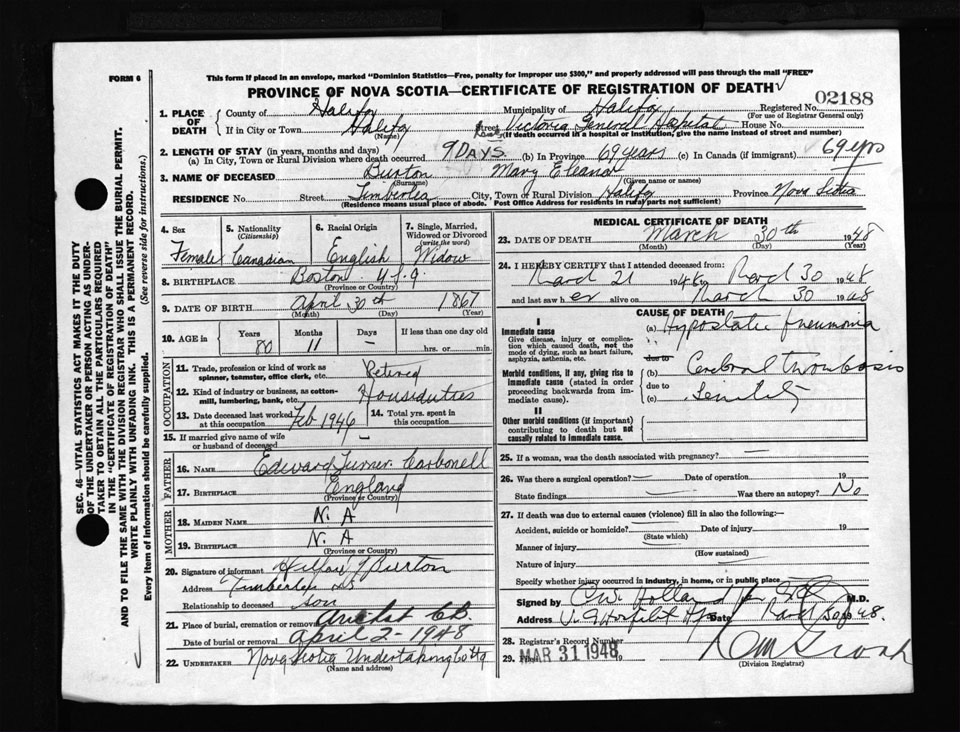 FORM 6
This form if placed in an envelope, marked "Dominion Statistics—Free, penalty for improper use $300," and properly addressed will pass through the mail "FREE"
PROVINCE OF NOVA SCOTIA—CERTIFICATE OF REGISTRATION OF DEATH
02188
1. PLACE OF DEATH
County of Halifax Municipality of Halifax Registered No.
(For use of Registrar General only)
If in City or Town Halifax Street Victoria General Hospital House No.
(Name) (If death occurred in a hospital or institution, give the name instead of street and number)
2. LENGTH OF STAY (in years, months and days)
(a) In City, Town or Rural Division where death occurred 9 DAYS (b) In Province 69 years (c) In Canada (if immigrant) 69 yrs
3. NAME OF DECEASED Burton Mary Eleanor
(Surname) (Given name or names)
RESIDENCE No. Street Timberlea City, Town or Rural Division Halifax Province Nova Scotia
(Residence means usual place of abode. Post Office Address for residents in rural parts not sufficient)
4. Sex
Female
5. Nationality
(Citizenship)
Canadian
6. Racial Origin
English
7. Single, Married, Widowed or Divorced
(write the word)
Widow
8. BIRTHPLACE Boston U.S.A
(Province or Country)
9. DATE OF BIRTH April 30th 1867
(Month) (Day) (Year)
10. AGE in Years Months Days If less than one day old
80 11 — hrs. or min.
OCCUPATION
11. Trade, profession or kind of work as spinner, teamster, office clerk, etc. Retired
12. Kind of industry or business, as cotton-mill, lumbering, bank, etc. Houseduties
13. Date deceased last worked at this occupation Feb 1946
14. Total yrs. spent in this occupation
15. If married give name of wife or husband of deceased —
FATHER
16. NAME Edward Turner Carbonell
17. BIRTHPLACE England
(Province or Country)
MOTHER
18. MAIDEN NAME N. A
19. BIRTHPLACE N. A
(Province or Country)
20. Signature of informant Burton
Address Timberlea NS
Relationship to deceased son
21. Place of burial, cremation or removal Arichat C.B.
Date of burial or removal April 2 - 1948
22. UNDERTAKER Nova Scotia Undertaking
(Name and address)
MEDICAL CERTIFICATE OF DEATH
23. DATE OF DEATH March 30th 1948
(Month) (Day) (Year)
24. I HEREBY CERTIFY that I attended deceased from:
March 21 1948 to March 30 1948
and last saw her alive on March 30 1948
CAUSE OF DEATH
I
Immediate cause
Give disease, injury or complication which caused death, not the mode of dying, such as heart failure, asphyxia, asthenia, etc.
(a) Hypostatic pneumonia
due to
Morbid conditions, if any, giving rise to immediate cause (stated in order proceeding backwards from immediate cause).
(b) Cerebral thrombosis
due to
(c) Senility
II
Other morbid conditions (if important) contributing to death but not causally related to immediate cause.
25. If a woman, was the death associated with pregnancy? —
26. Was there a surgical operation? — Date of operation 19
State findings — Was there an autopsy? No
27. If death was due to external causes (violence) fill in also the following:—
Accident, suicide or homicide? Date of injury 19
(State which)
Manner of injury
(How sustained)
Nature of injury
Specify whether injury occurred in industry, in home, or in public place
Signed by C.W. Holland M.D.
Address V. G Hospital Date March 30 1948
28. Registrar's Record Number
29. Filed MAR 31 1948 19
(Division Registrar)
SEC. 46—VITAL STATISTICS ACT MAKES IT THE DUTY
OF THE UNDERTAKER OR PERSON ACTING AS UNDER-
TAKER TO OBTAIN ALL THE PARTICULARS REQUIRED
IN THE "CERTIFICATE OF REGISTRATION OF DEATH"
AND TO FILE THE SAME WITH THE DIVISION REGISTRAR WHO SHALL ISSUE THE BURIAL PERMIT.
WRITE PLAINLY WITH UNFADING INK. THIS IS A PERMANENT RECORD.
Every item of Information should be carefully supplied. (See reverse side for instructions.)